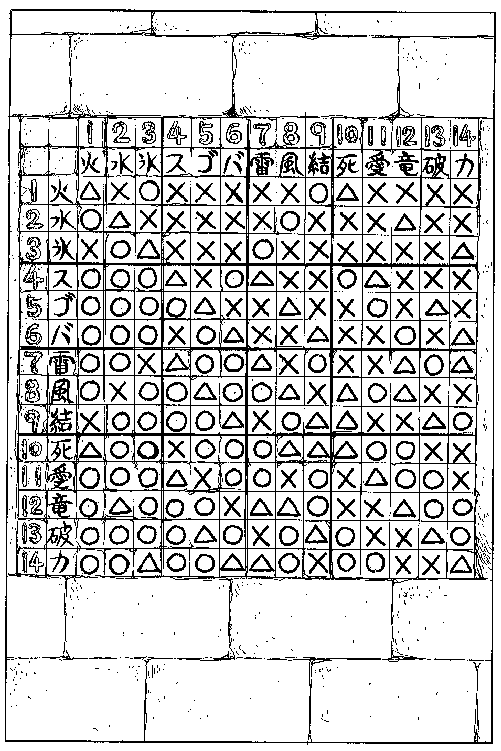 1 2 3 4 5 6 7 8 9 10 11 12 13 14
火 水 氷 ス ゴ バ 雷 風 結 死 愛 竜 破 力
1 火 △ × ○ × × × × × ○ △ × × × ×
2 水 ○ △ × × × × × ○ × × × △ × ×
3 氷 × ○ △ × × × ○ × × × × × × △
4 ス ○ ○ ○ △ × ○ △ × × ○ △ × × ×
5 ゴ ○ ○ ○ ○ △ × × △ × × ○ × △ ×
6 バ ○ ○ ○ × ○ △ × × △ × × ○ × △
7 雷 ○ ○ × △ ○ ○ △ × ○ × × △ ○ △
8 風 ○ × ○ ○ △ ○ ○ △ × △ ○ △ × ×
9 結 × ○ ○ ○ ○ △ × ○ △ △ × × △ ○
10 死 △ ○ ○ × ○ ○ ○ △ △ △ ○ ○ × ×
11 愛 ○ ○ ○ △ × ○ ○ × ○ × △ ○ ○ ×
12 竜 ○ △ ○ ○ ○ × △ △ ○ × × △ ○ ○
13 破 ○ ○ ○ ○ △ ○ × ○ △ ○ × × △ ○
14 力 ○ ○ △ ○ ○ △ △ ○ × ○ ○ × × △